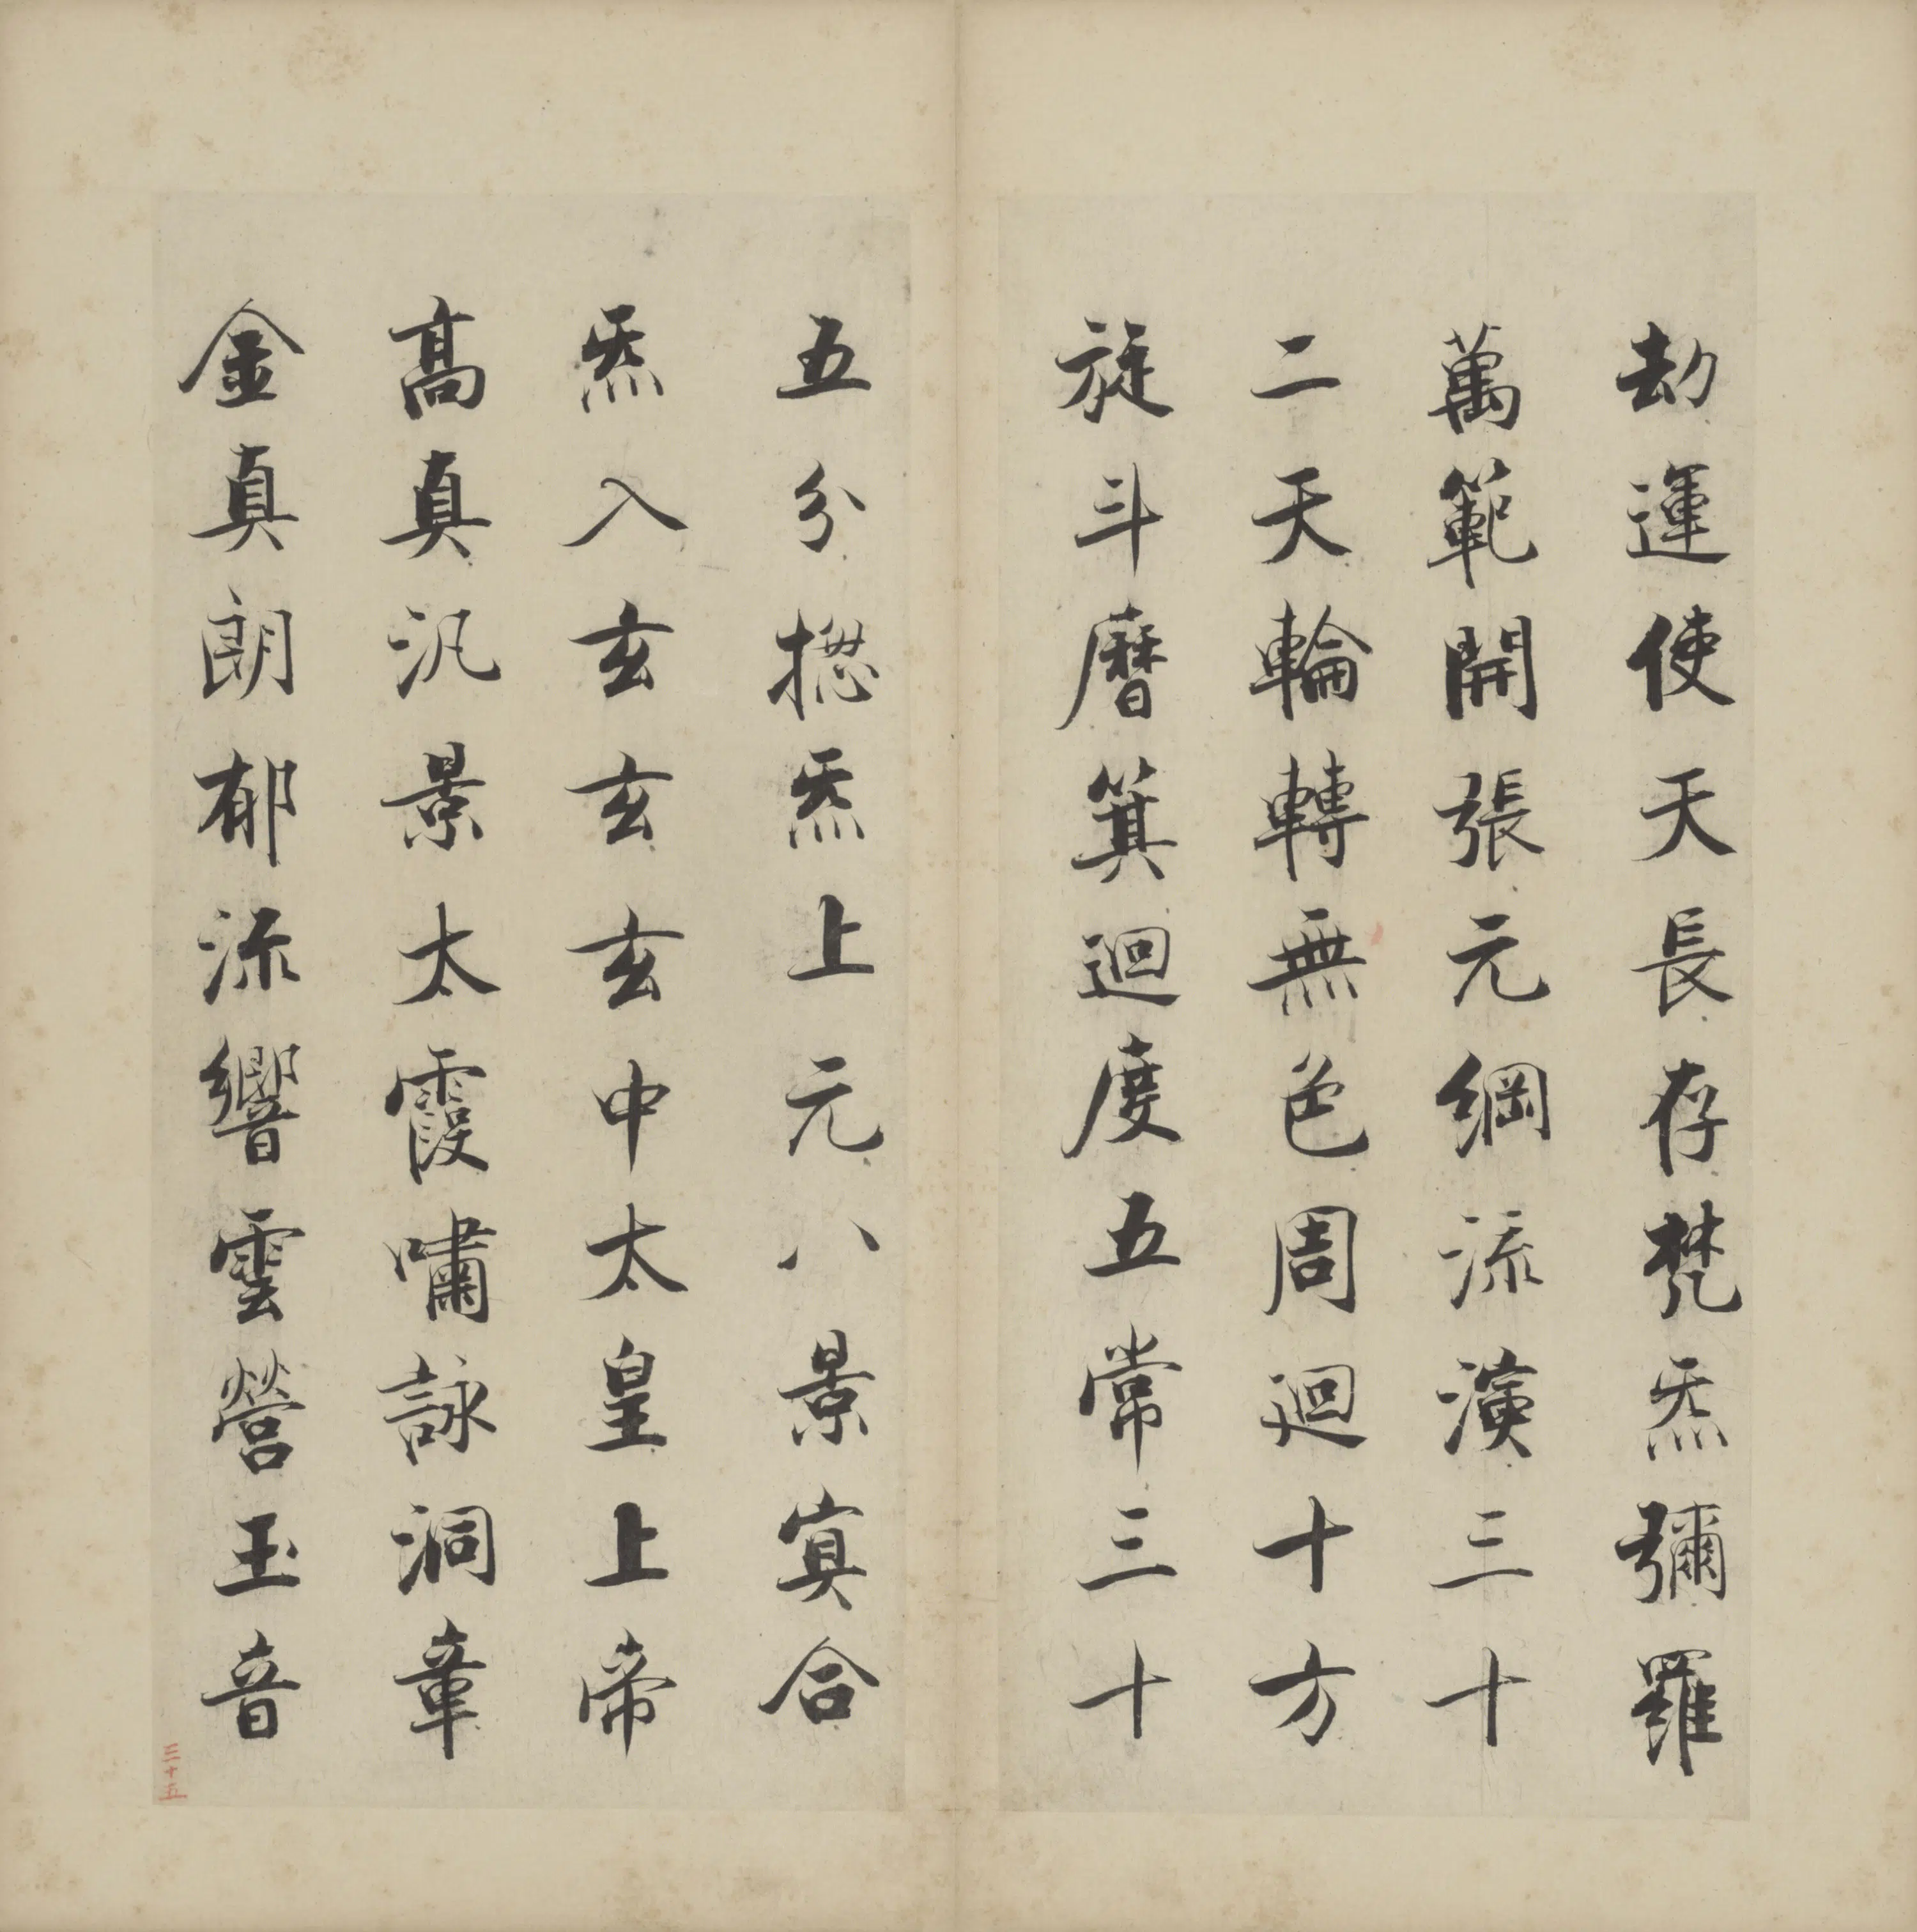 劫運使天長存梵炁彌羅
萬範開張元綱流演三十
二天輪轉無色周迴十方
旋斗曆箕迴度五常三十
五分揔炁上元八景寘合
炁入玄玄玄中太皇上帝
髙真汎景太霞嘯詠洞章
金真朗郁流響雲營玉音
三十五